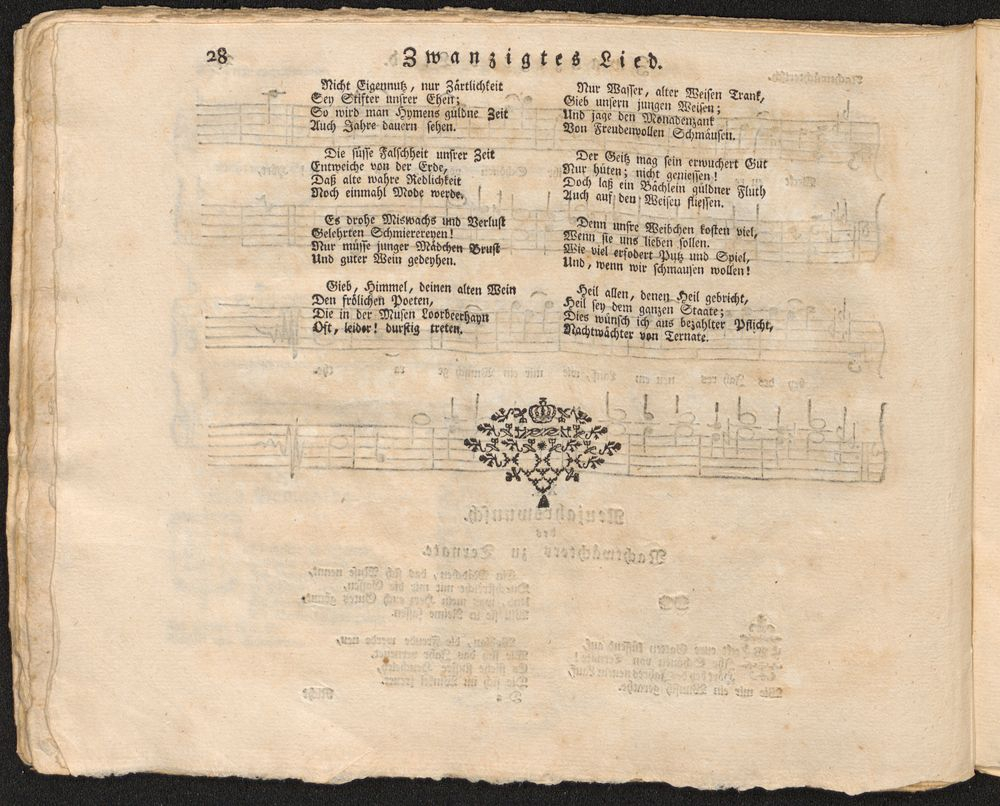 28
Zwanzigtes Lied.
Nicht Eigennutz, nur Zärtlichkeit
Sey Stifter unsrer Ehen;
So wird man Hymens güldne Zeit
Auch Jahre dauern sehen.
Die süsse Falschheit unsrer Zeit
Entweiche von der Erde,
Daß alte wahre Redlichkeit
Noch einmahl Mode werde.
Es drohe Miswachs und Verlust
Gelehrten Schmierereyen!
Nur müsse junger Mädchen Brust
Und guter Wein gedeyhen.
Gieb, Himmel, deinen alten Wein
Den frölichen Poeten,
Die in der Musen Loorbeerhayn
Oft, leider! durstig treten.
Nur Wasser, alter Weisen Trank,
Gieb unsern jungen Weisen;
Und jage den Monadenzank
Von Freudenvollen Schmäusen.
Der Geitz mag sein erwuchert Gut
Nur hüten; nicht geniessen!
Doch laß ein Bächlein güldner Fluth
Auch auf den Weisen fliessen.
Denn unsre Weibchen kosten viel,
Wenn sie uns lieben sollen.
Wie viel erfodert Putz und Spiel,
Und, wenn wir schmausen wollen!
Heil allen, denen Heil gebricht,
Heil sey dem ganzen Staate;
Dies wünsch ich aus bezahlter Pflicht,
Nachtwächter von Ternate.